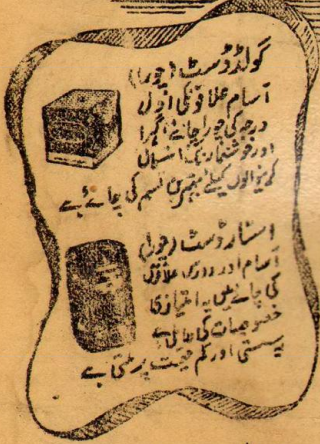 گولڈ ڈسٹ (چورا)
آسام علاقوں کی اول
درجہ کی چورا چائے، گہرا
اور خوشنما رنگ استعمال
کرنیوالوں کیلئے بہترین قسم کی چائے ہے
اسٹار ڈسٹ (چورا)
آسام اور دوری علاقوں
کی چائے
خصوصیات کی حامل ہے
سستی اور کم قیمت پر ملتی ہے